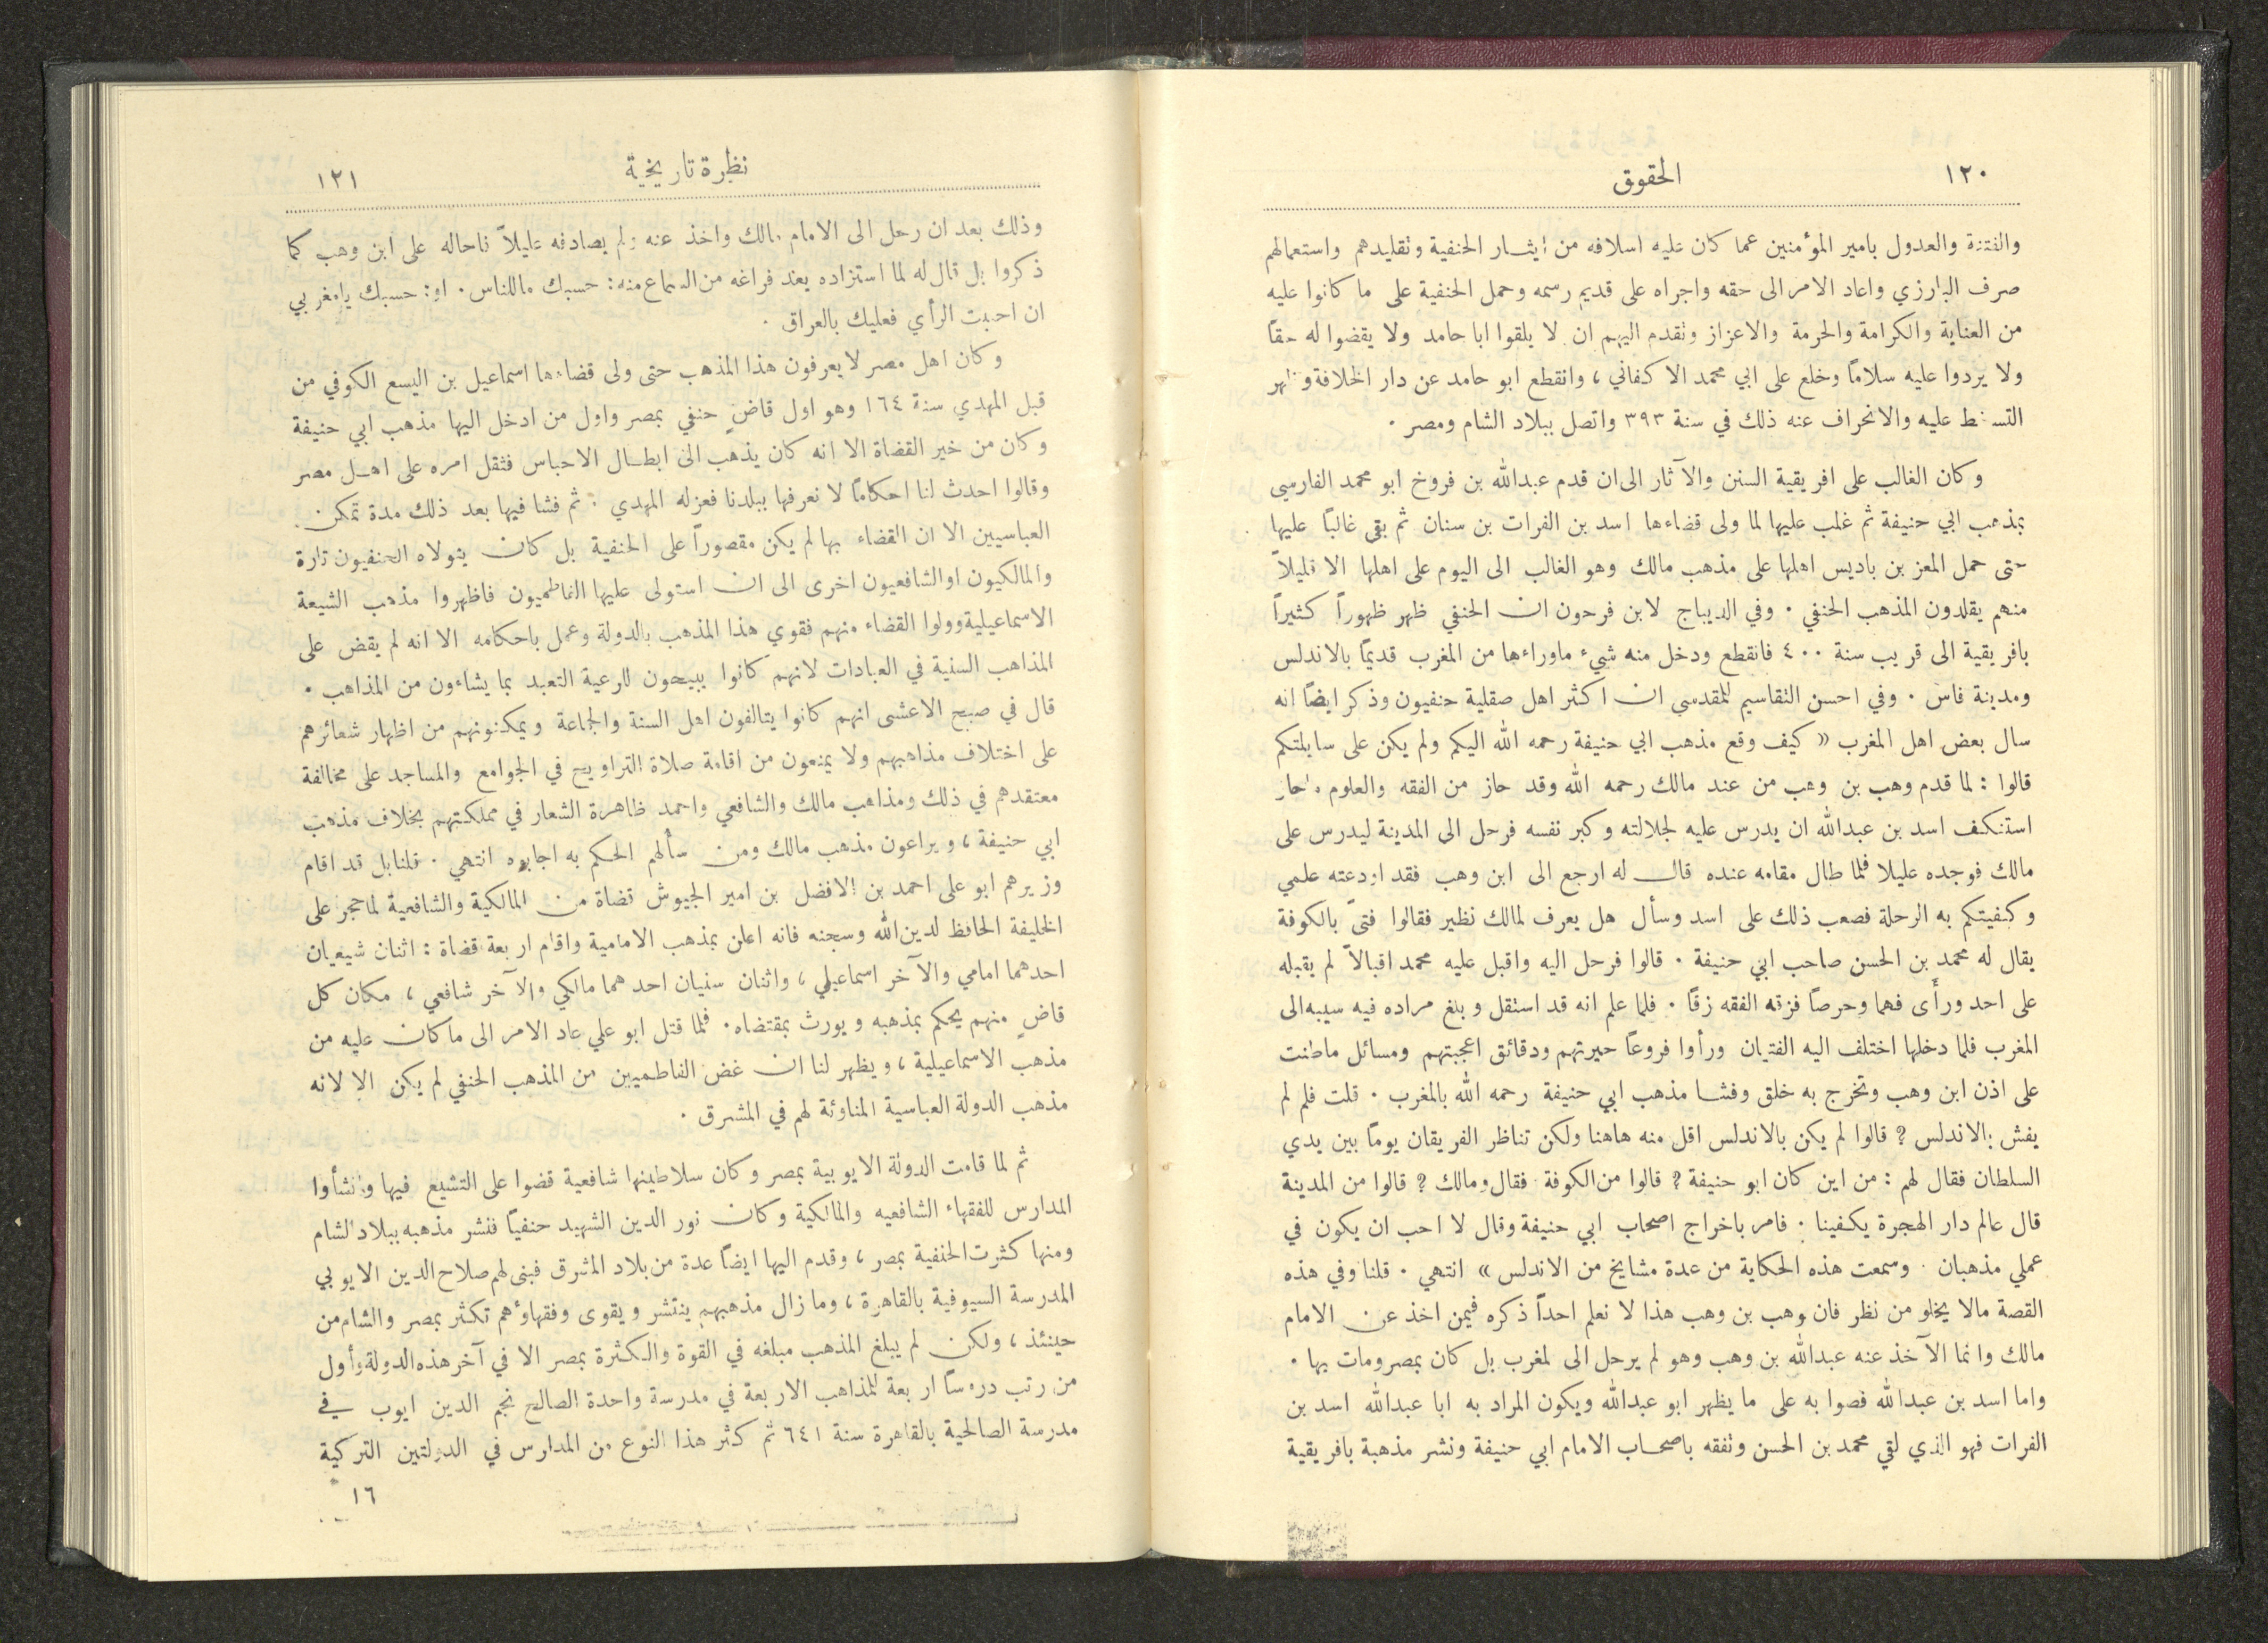 ١٢٠
الحقوق
والفتنة والعدول بامير المؤمنين عما كان عليه اسلافه من ايثار الحنفية وتقليدهم واستعمالهم
صرف البارزي واعاد الامر الى حقه واجراه على قديم رسمه وحمل الحنفية على ما كانوا عليه
من العناية والكرامة والحرمة والاعزاز وتقدم اليهم ان لا يلقوا ابا حامد ولا يقضوا له حقاً
ولا يردوا عليه سلاماً وخلع على ابي محمد الاكفاني ، وانقطع ابو حامد عن دار الخلافة وظهر
التسخط عليه والانحراف عنه ذلك في سنة ٣٩٣ واتصل ببلاد الشام ومصر ٠
وكان الغالب على افريقية السنن والآثار الى ان قدم عبدالله بن فروخ ابو محمد الفارسي
بمذهب ابي حنيفة ثم غلب عليها لما ولى قضاءها اسد بن الفرات بن سنان ثم بقي غالباً عليها
حتى حمل المعز بن باديس اهلها على مذهب مالك وهو الغالب الى اليوم على اهلها الا قليلاً
منهم يقلدون المذهب الحنفي ٠ وفي الديباج لابن فرحون ان الحنفي ظهر ظهوراً كثيراً
بافريقية الى قريب سنة ٤٠٠ فانقطع ودخل منه شيء ماوراءها من المغرب قديماً بالاندلس
ومدينة فاس ٠ وفي احسن التقاسيم للمقدسي ان اكثر اهل صقلية حنفيون وذكر ايضاً انه
سال بعض اهل المغرب « كيف وقع مذهب ابي حنيفة رحمه الله اليكم ولم يكن على سابلتكم
قالوا : لما قدم وهب بن وهب من عند مالك رحمه الله وقد حاز من الفقه والعلوم ماحاز
استنكف اسد بن عبدالله ان يدرس عليه لجلالته وكبر نفسه فرحل الى المدينة ليدرس على
مالك فوجده عليلا فلما طال مقامه عنده قال له ارجع الى ابن وهب فقد اودعته علمي
وكفيتكم به الرحلة فصعب ذلك على اسد وسأل هل يعرف لمالك نظير فقالوا فتىً بالكوفة
يقال له محمد بن الحسن صاحب ابي حنيفة ٠ قالوا فرحل اليه واقبل عليه محمد اقبالاً لم يقبله
على احد ورأى فهما وحرصاً فزقه الفقه زقاً ٠ فلما علم انه قد استقل وبلغ مراده فيه سيبه الى
المغرب فلما دخلها اختلف اليه الفتيان ورأوا فروعاً حيرتهم ودقائق اعجبتهم ومسائل ماطنت
على اذن ابن وهب وتخرج به خلق وفشا مذهب ابي حنيفة رحمه الله بالمغرب ٠ قلت فلم لم
يفش بالاندلس ? قالوا لم يكن بالاندلس اقل منه هاهنا ولكن تناظر الفريقان يوماً بين يدي
السلطان فقال لهم : من اين كان ابو حنيفة ? قالوا من الكوفة فقال ومالك ? قالوا من المدينة
قال عالم دار الهجرة يكفينا ٠ فامر باخراج اصحاب ابي حنيفة وقال لا احب ان يكون في
عملي مذهبان ٠ وسمعت هذه الحكاية من عدة مشايخ من الاندلس » انتهي ٠ قلنا وفي هذه
القصة مالا يخلو من نظر فان وهب بن وهب هذا لا نعلم احداً ذكره فيمن اخذ عن الامام
مالك وانما الآخذ عنه عبدالله بن وهب وهو لم يرحل الى لمغرب بل كان بمصر ومات بها ٠
واما اسد بن عبدالله فصوابه على ما يظهر ابو عبدالله ويكون المراد به ابا عبدالله اسد بن
الفرات فهو الذي لقي محمد بن الحسن وتفقه باصحاب الامام ابي حنيفة ونشر مذهبة بافريقية
نظرة تاريخية
١٢١
وذلك بعد ان رحل الى الامام مالك واخذ عنه ولم يصادفه عليلاً فاحاله على ابن وهب كما
ذكروا بل قال له لما استزاده بعد فراغه من السماع منه : حسبك ماللناس ٠ او : حسبك يامغربي
ان احببت الرأي فعليك بالعراق ٠
وكان اهل مصر لا يعرفون هذا المذهب حتى ولى قضاءها اسماعيل بن اليسع الكوفي من
قبل المهدي سنة ١٦٤ وهو اول قاضٍ حنفي بمصر واول من ادخل اليها مذهب ابي حنيفة
وكان من خير القضاة الا انه كان يذهب الى ابطال الاحباس فثقل امره على اهل مصر
وقالوا احدث لنا احكاماً لا نعرفها ببلدنا فعزله المهدي ٠ ثم فشا فيها بعد ذلك مدة تمكن
العباسيين الا ان القضاء بها لم يكن مقصوراً على الحنفية بل كان يتولاه الحنفيون تارة
والمالكيون او الشافعيون اخرى الى ان استولى عليها الفاطميون فاظهروا مذهب الشيعة
الاسماعيلية وولوا القضاء منهم فقوي هذا المذهب بالدولة وعمل باحكامه الا انه لم يقض على
المذاهب السنية في العبادات لانهم كانوا يبيحون للرعية التعبد بما يشاءون من المذاهب ٠
قال في صبح الاعشى انهم كانوا يتالفون اهل السنة والجماعة ويمكنونهم من اظهار شعائرهم
على اختلاف مذاهبهم ولا يمنعون من اقامة صلاة التراويح في الجوامع والمساجد على مخالفة
معتقدهم في ذلك ومذاهب مالك والشافعي واحمد ظاهرة الشعار في مملكتهم بخلاف مذهب
ابي حنيفة ، ويراعون مذهب مالك ومن سألهم الحكم به اجابوه انتهي ٠ قلنا بل قد اقام
وزيرهم ابو على احمد بن الافضل بن امير الجيوش قضاة من المالكية والشافعية لما حجر على
الخليفة الحافظ لدين الله وسجنه فانه اعلن بمذهب الامامية واقام اربعة قضاة : اثنان شيعيان
احدهما امامي والآخر اسماعيلي ، واثنان سنيان احدهما مالكي والآخر شافعي ، مكان كل
قاضٍ منهم يحكم بمذهبه ويورث بمقتضاه ٠ فلما قتل ابو علي عاد الامر الى ما كان عليه من
مذهب الاسماعيلية ، ويظهر لنا ان غض الفاطميين من المذهب الحنفي لم يكن الا لانه
مذهب الدولة العباسية المناوئة لهم في المشرق ٠
ثم لما قامت الدولة الايوبية بمصر وكان سلاطينها شافعية قضوا على التشيع فيها وانشأوا
المدارس للفقهاء الشافعيه والمالكية وكان نور الدين الشهيد حنفياً فنشر مذهبه ببلاد الشام
ومنها كثرت الحنفية بمصر ، وقدم اليها ايضاً عدة من بلاد المشرق فبنى لهم صلاح الدين الايوبي
المدرسة السيوفية بالقاهرة ، وما زال مذهبهم ينتشر ويقوى وفقهاؤهم تكثر بمصر والشام من
حينئذ ، ولكن لم يبلغ المذهب مبلغه في القوة والكثرة بمصر الا في آخر هذه الدولة وأول
من رتب دروساً اربعة للمذاهب الاربعة في مدرسة واحدة الصالح نجم الدين ايوب في
مدرسة الصالحية بالقاهرة سنة ٦٤١ ثم كثر هذا النوع من المدارس في الدولتين التركية
١٦